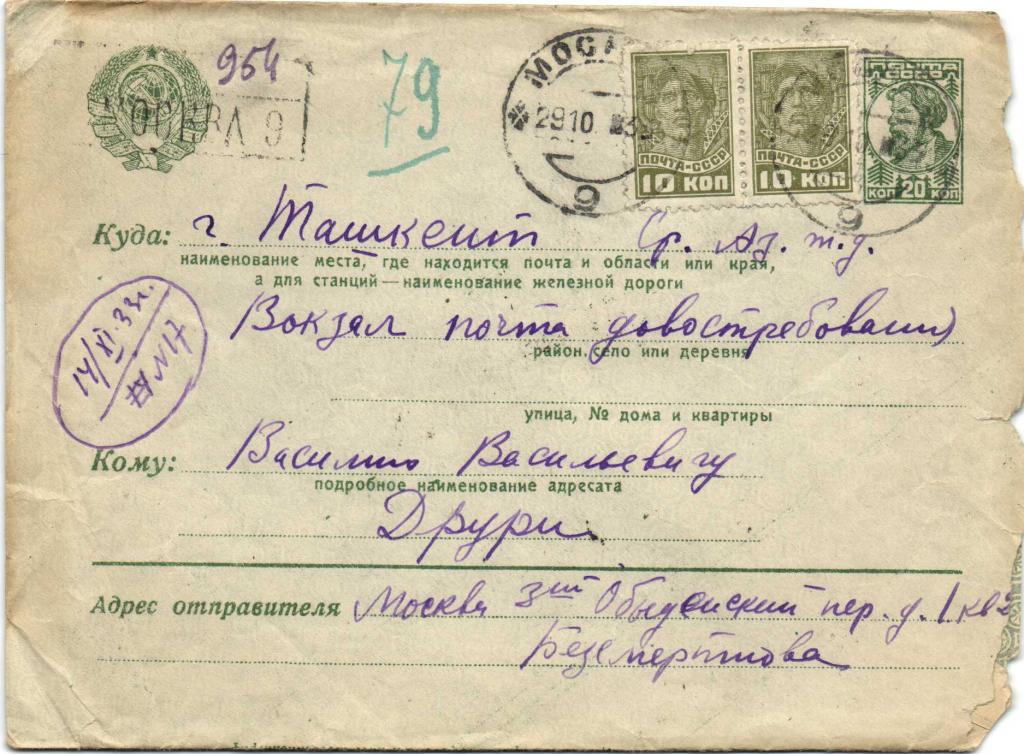 954
МОСКВА 9
79
МОСК
29 10 33
9
ПОЧТА-СССР
10 КОП
ПОЧТА-СССР
10 КОП
9
ПОЧТА
СССР
КОП 20 КОП
Куда: г. Ташкент Ср. Аз. ж.д.
наименование места, где находится почта и области или края,
а для станций—наименование железной дороги
Вокзал почта довостребования
район, село или деревня
14/XI.33г.
№17
улица, № дома и квартиры
Кому: Василию Васильевичу
подробное наименование адресата
Друри
Адрес отправителя Москва 3ий Обыденский пер. д. 1 кв
Безсмертнова